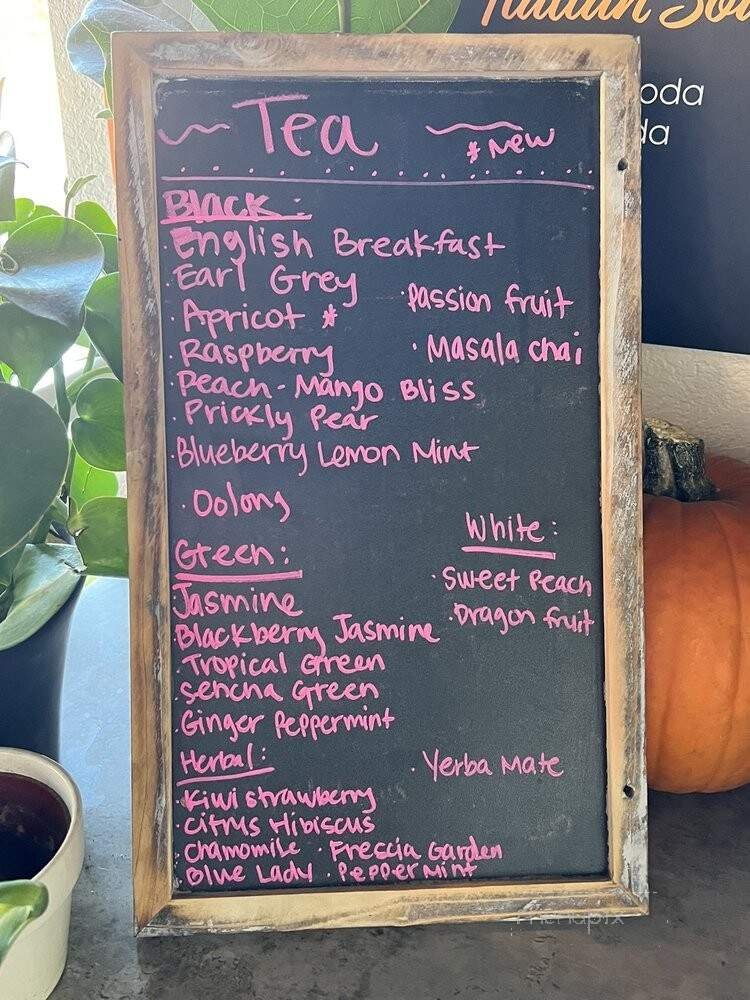 Italian So
oda
da
Tea
* New
Black:
· English Breakfast
· Earl Grey
· Passion fruit
· Apricot *
· Raspberry
· Masala chai
· Peach-Mango Bliss
· Prickly Pear
· Blueberry Lemon Mint
· Oolong
White:
· Sweet Peach
· Dragon fruit
Green:
Jasmine
· Blackberry Jasmine
· Tropical Green
· Sencha Green
· Ginger Peppermint
Herbal:
· Yerba Mate
· Kiwi strawberry
· Citrus Hibiscus
· Chamomile · Frescia Garden
· Blue Lady · Peppermint
menupix